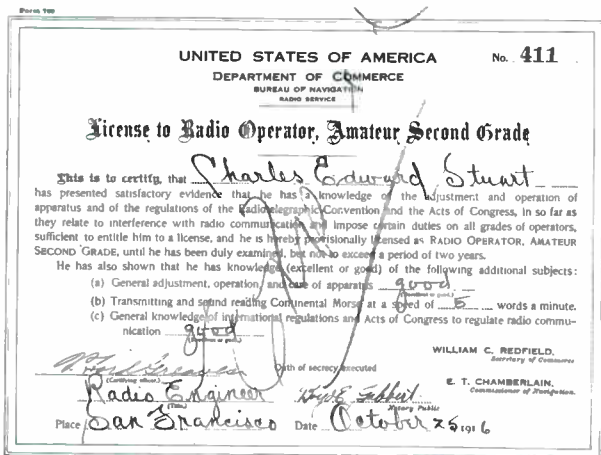 Form 700
UNITED STATES OF AMERICA
No. 411
DEPARTMENT OF COMMERCE
BUREAU OF NAVIGATION
RADIO SERVICE
License to Radio Operator, Amateur Second Grade
This is to certify, that Charles Edward Stuart
has presented satisfactory evidence that he has a knowledge of the adjustment and operation of
apparatus and of the regulations of the Radiotelegraphic Convention and the Acts of Congress, in so far as
they relate to interference with radio communication and impose certain duties on all grades of operators,
sufficient to entitle him to a license, and he is hereby provisionally licensed as RADIO OPERATOR, AMATEUR
SECOND GRADE, until he has been duly examined, but not to exceed a period of two years.
He has also shown that he has knowledge (excellent or good) of the following additional subjects:
(a) General adjustment, operation, and care of apparatus good
(Excellent or good.)
(b) Transmitting and sound reading Continental Morse at a speed of 5 words a minute.
(c) General knowledge of international regulations and Acts of Congress to regulate radio commu-
nication good
(Excellent or good.)
WILLIAM C. REDFIELD,
Secretary of Commerce
Oath of secrecy executed
(Certifying officer.)
E. T. CHAMBERLAIN,
Commissioner of Navigation.
Radio Engineer
(Title.)
Notary Public
Place San Francisco Date October 25 1916